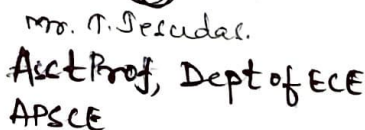 Mr. T. Jesudas.
Asct Prof, Dept of ECE
APSCE